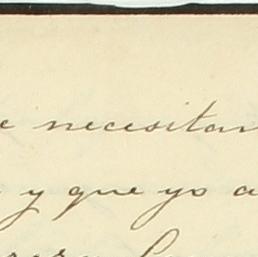 e necesitan
y que yo a